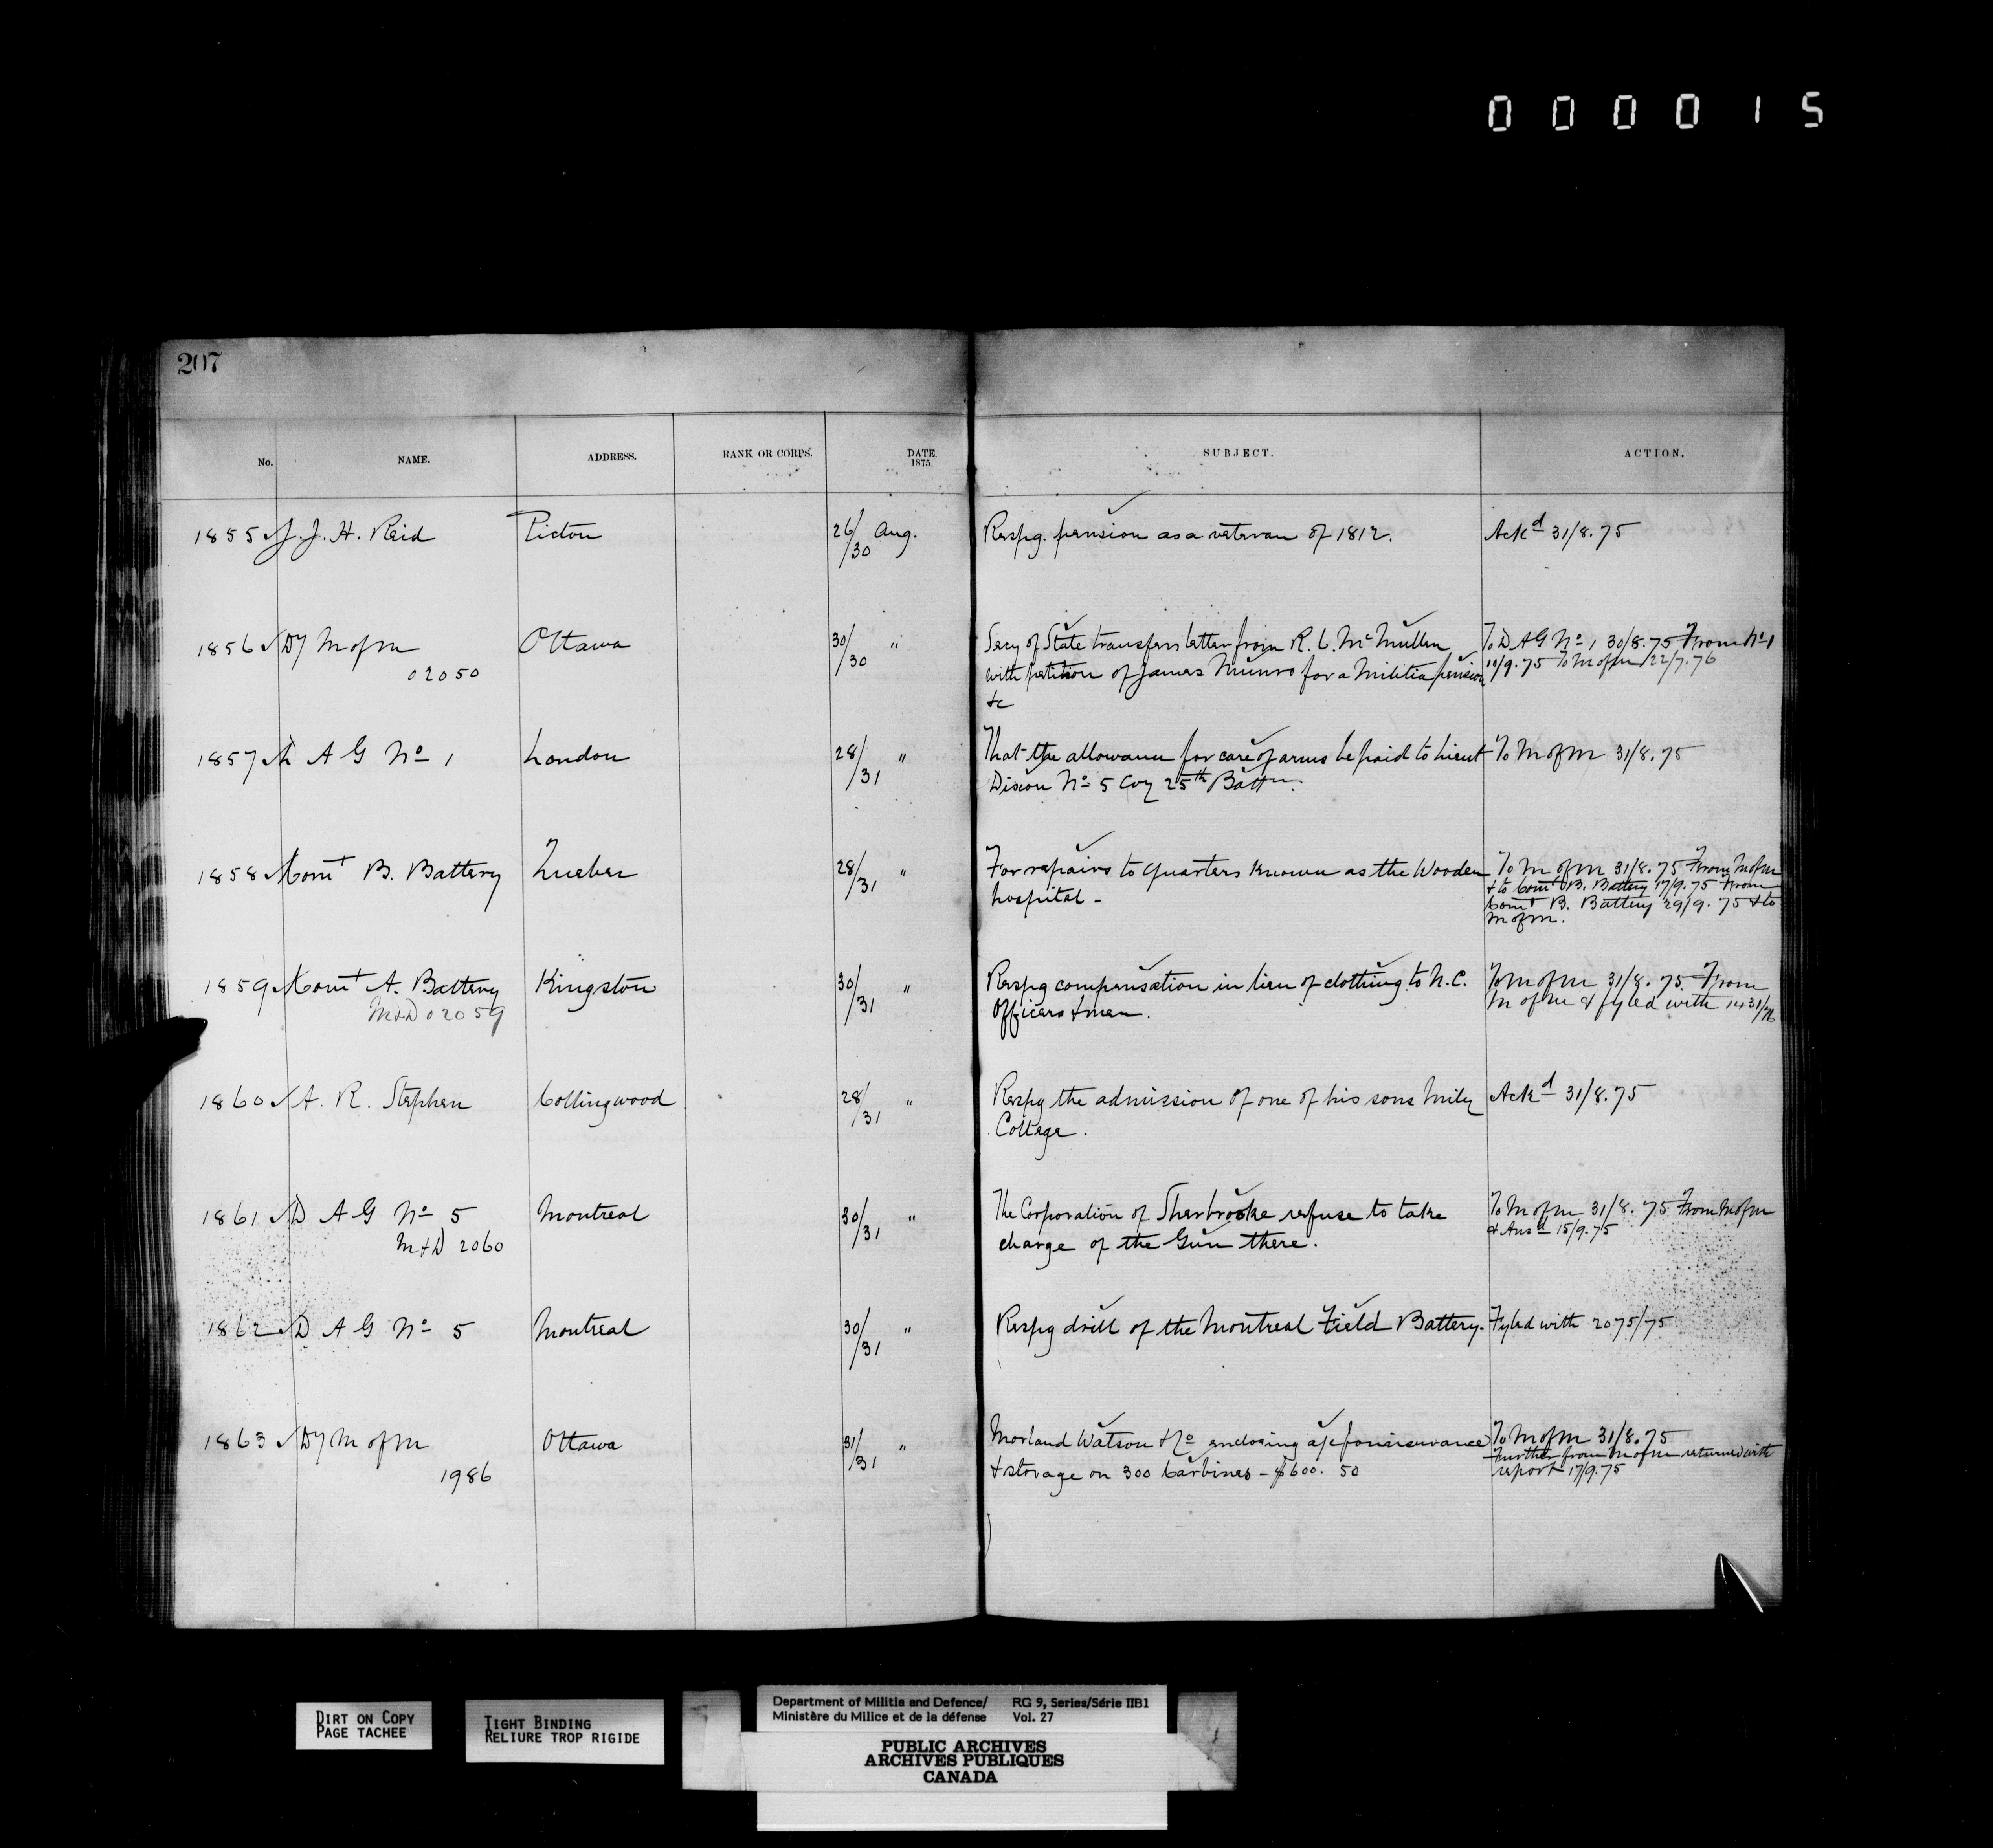 000015
207
No. NAME. ADDRESS. RANK OR CORPS. DATE. 1875. SUBJECT. ACTION.
1855 J. J. H. Reid Picton 26/30 Aug. Respg. pension as a veteran of 1812. Ackd 31/8.75
1856 Dy M of M Ottawa 30/30 " Secy of State transfers letter from R. C. McMullen To D A G No 1 30/8.75 From No 1
02050 with petition of James Munro for a Militia pension 10/9.75 To M of M 22/7.76
&c
1857 D A G No 1 London 28/31 " That the allowance for care of arms be paid to Lieut To M of M 31/8.75
Dixon No 5 Coy 25th Battn.
1858 Comt B. Battery Quebec 28/31 " For repairs to quarters known as the Wooden To M of M 31/8.75 From M of M
hospital - & to Comt B. Battery 17/9.75 From
Comt B. Battery 29/9.75 & to
M of M.
1859 Comt A. Battery Kingston 30/31 " Respg compensation in lieu of clothing to N.C. To M of M 31/8.75 From
M&D 02059 Officers & men. M of M & fyled with 1431/76
1860 A. R. Stephen Collingwood 28/31 " Respg the admission of one of his sons Mily Ackd 31/8.75
College.
1861 D A G No 5 Montreal 30/31 " The Corporation of Sherbrooke refuse to take To M of M 31/8.75 From M of M
M&D 2060 charge of the Gun there. & Ansd 15/9.75
1862 D A G No 5 Montreal 30/31 " Respg drill of the Montreal Field Battery. Fyled with 2075/75
1863 Dy M of M Ottawa 31/31 " Morland Watson & Co enclosing a/c for insurance To M of M 31/8.75
1986 & storage on 300 Carbines - $600.50 Further from M of M returned with
report 17/9.75
DIRT ON COPY
PAGE TACHEE
TIGHT BINDING
RELIURE TROP RIGIDE
Department of Militia and Defence/ RG 9, Series/Série IIB1
Ministère du Milice et de la défense Vol. 27
PUBLIC ARCHIVES
ARCHIVES PUBLIQUES
CANADA